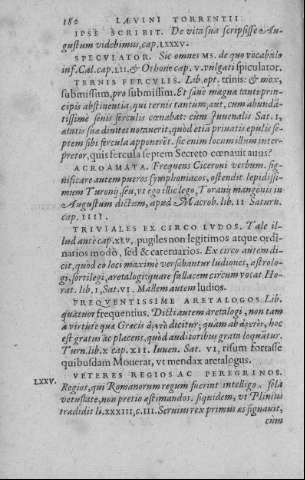 180 LÆVINI TORRENTII
IPSE SCRIBIT. De vita sua scripsisse Au-
gustum videbimus, cap. LXXXV.
SPECVLATOR. Sic omnes MS. de quo vocabulo
inf. Cal. cap. LII. & Othone cap. V. vulgati spiculator.
TERNIS FERCVLIS. Lib. opt. trinis: & mox,
submissim, pro submissim. Et sanè magna tanti prin-
cipis abstinentia, qui ternis tantum, aut, cum abundā-
tissimè senis ferculis cœnabat: cùm Iuuenalis Sat. I.
ætatis sua diuites notauerit, quòd etiā priuatis epulis se-
ptem sibi fercula apponerēt. sic enim locum illum inter-
pretor, quis fercula septem Secreto cœnauit auus?
ACROAMATA. Frequens Ciceroni verbum. sig-
nificare autem pueros symphoniacos, ostendit lepidissi-
mum Turonij, seu, vt ego illic lego, Toranij mangonis in
Augustum dictum, apud Macrob. lib. II Saturn.
cap. IIII.
TRIVIALES EX CIRCO LVDOS. Tale il-
lud antè cap. XLV, pugiles non legitimos atque ordi-
narios modò, sed & cateruarios. Ex circo autem di-
cit, quòd eo loci maximè versabantur ludiones, astrolo-
gi, sortilegi, aretalogi: quare fallacem circum vocat Ho-
rat. lib. I, Sat. VI. Mallem autem ludios.
FREQVENTISSIME ARETALOGOS. Lib.
quatuor frequentius. Dicti autem aretalogi, non tam
à virtute qua Græcis dicitur; quàm ab hoc
est gratus ac placens, quòd auditoribus grata loquātur.
Turn. lib. X cap. XII. Iuuen. Sat. VI, risum fortasse
quibusdam Mouerat, vt mendax aretalogus.
LXXV. VETERES REGIOS AC PEREGRINOS.
Regios, qui Romanorum regum fuerint intelligo. sola
vetustate, non pretio æstimandos. siquidem, vt Plinius
tradidit li. XXXIII, c. III. Seruius rex primus æs signauit,
cùm